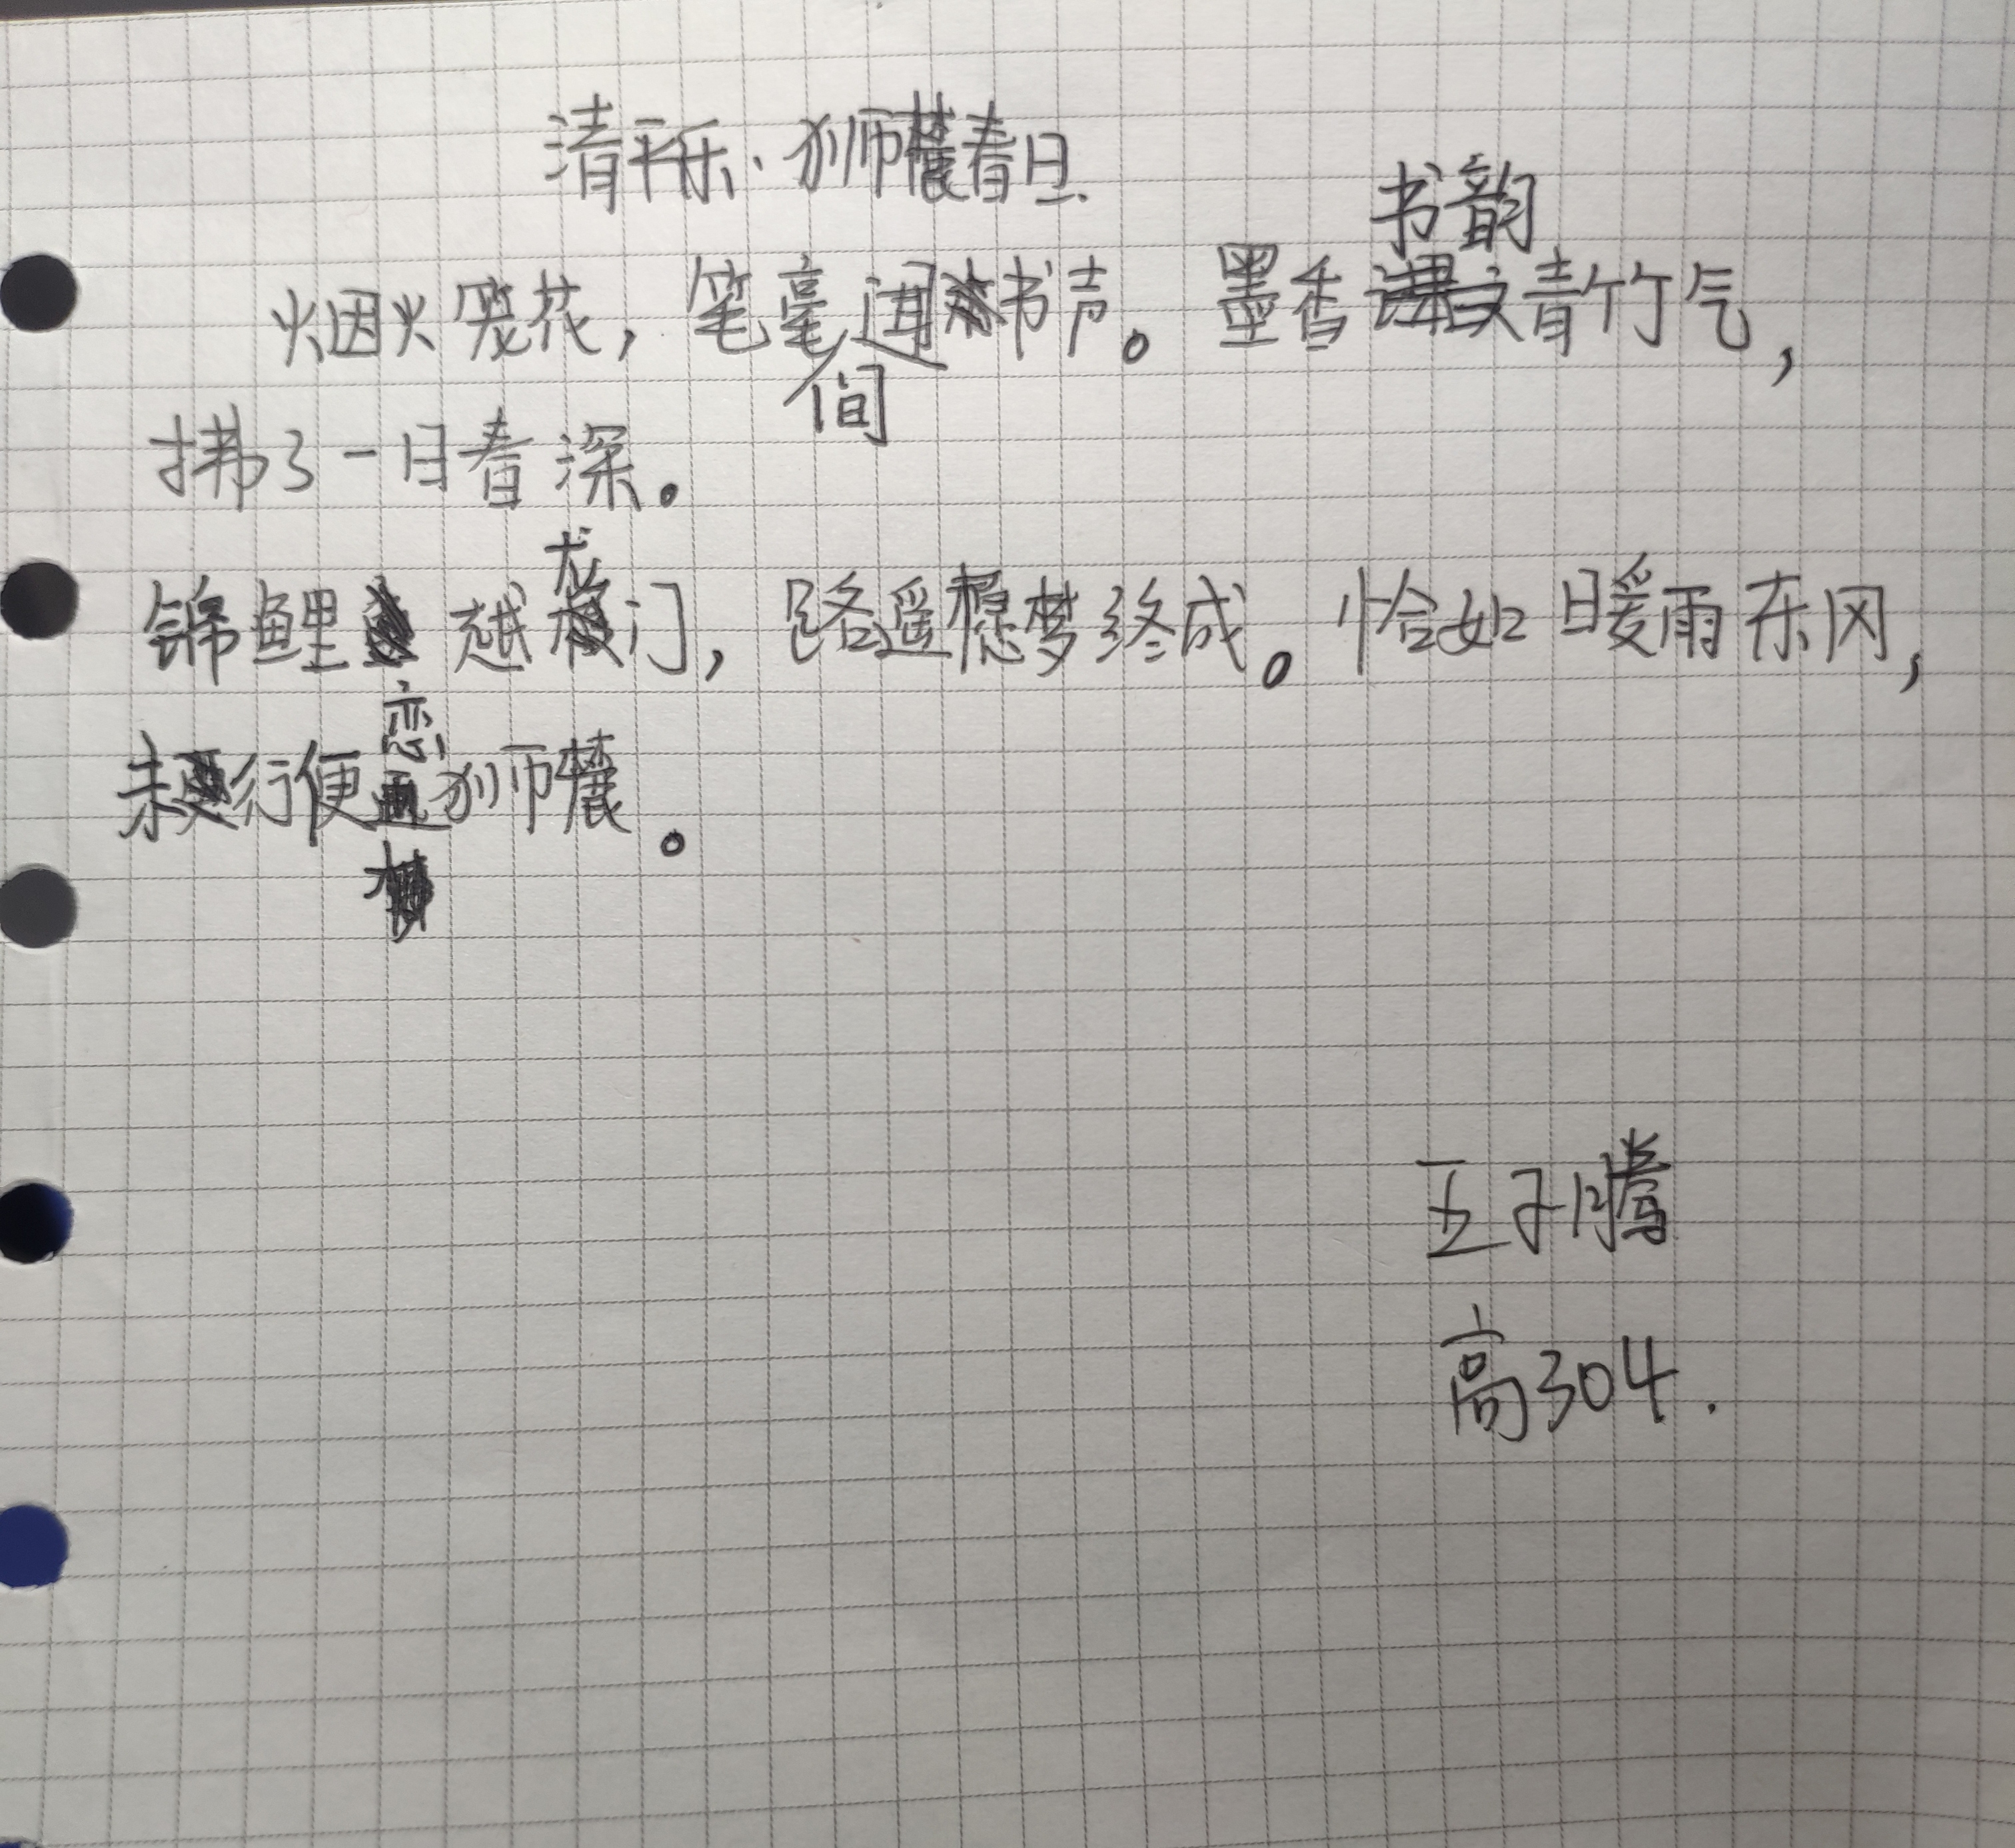 清平乐·狮麓春日
烟火笼花,笔毫间书声。墨香书韵青竹气,
拂了一日春深。
锦鲤越龙门,路遥梦终成。恰如暖雨东风,
未行便恋狮麓。
王子腾
高304.